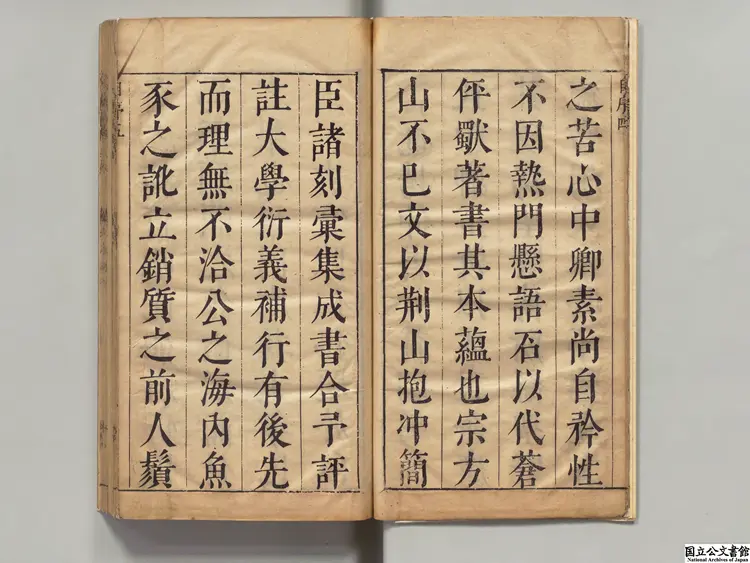 之苦心中卿素尚自矜性
不因熱門懸語石以代蒼
伻獸著書其本蘊也宗方
山不已文以荆山抱冲簡
臣諸刻彙集成書合予評
註大學衍義補行有後先
而理無不洽公之海内魚
豕之訛立銷質之前人鬚
国立公文書館
National Archives of Japan